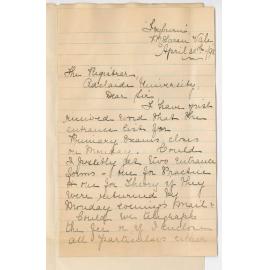 McLaren Vale
April 30th
The Registrar,
Adelaide University,
Dear Sir
I have just
received word that the
entrance lists for
Primary Exams, close
on Monday. Could
I possibly get two entrance
forms - one for Practice
& one for Theory if they
were returned by
Monday evenings mail &
Could we telegraph
the fee or if I enclose
all particulars